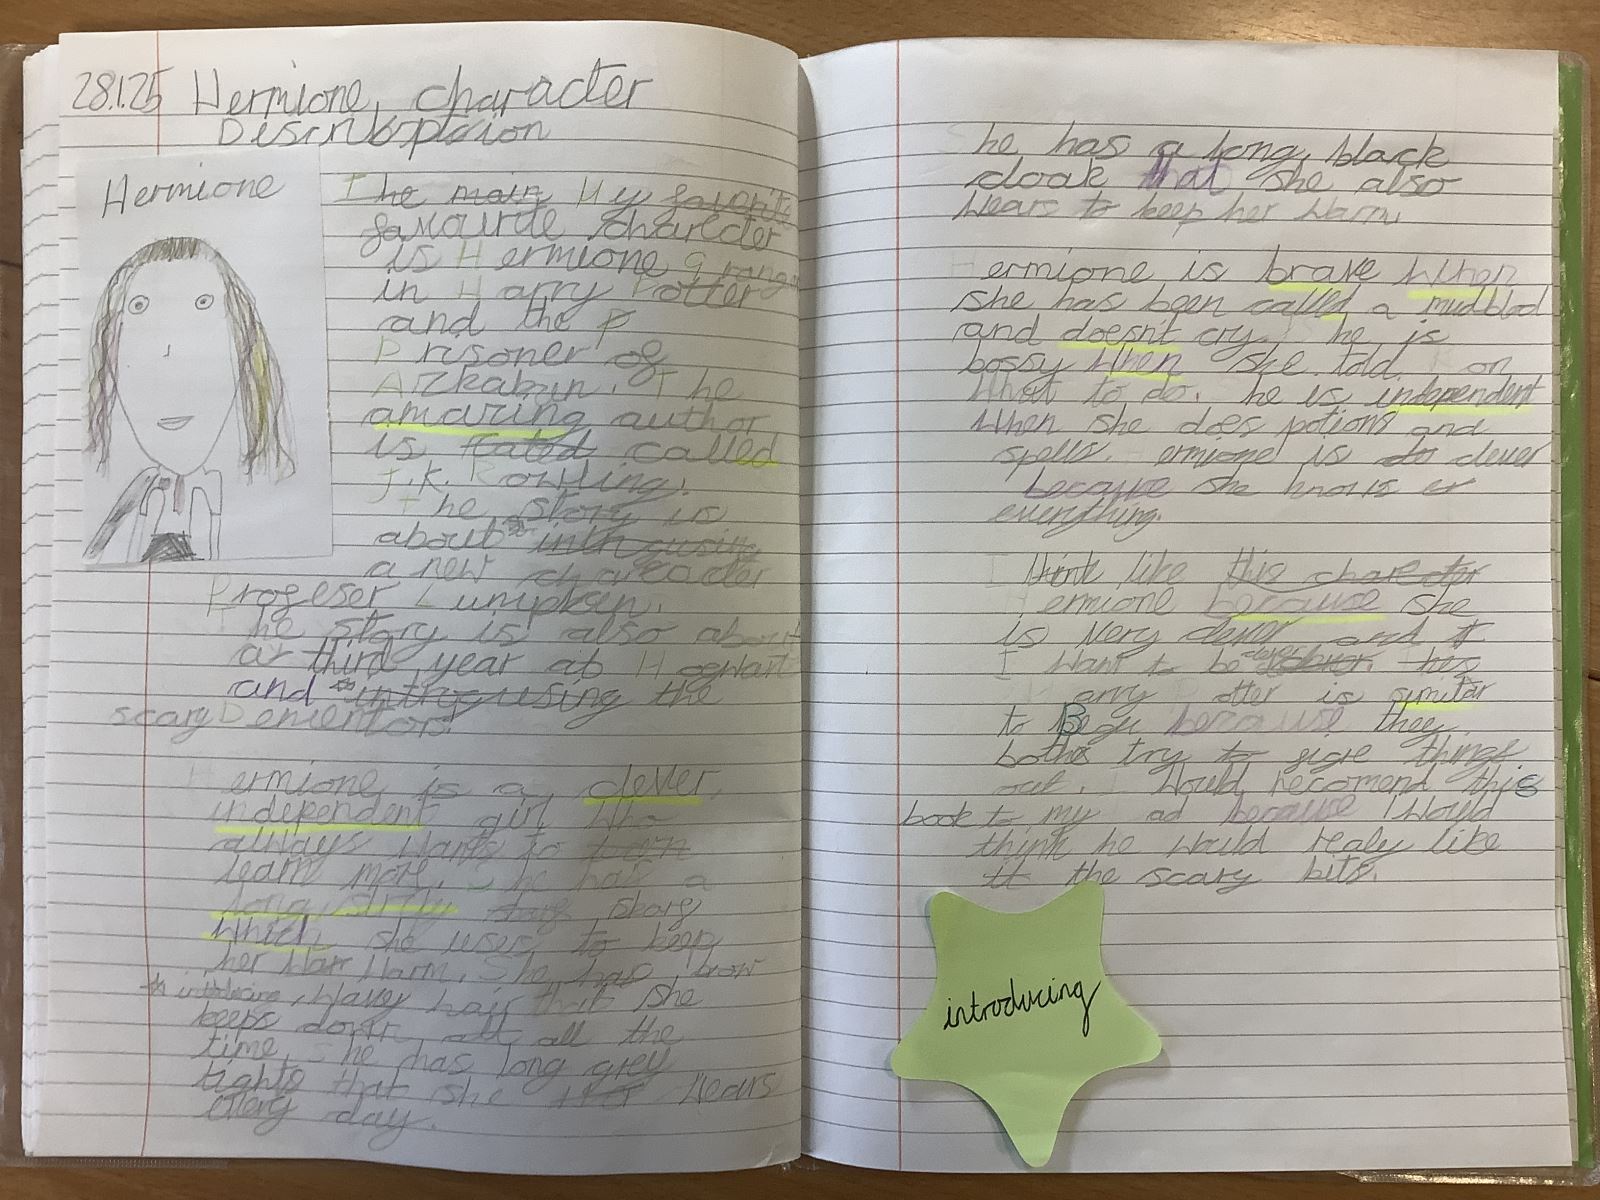 28.1.25 Hermione character
Describsplsion
Hermione
The main My favorite
favourite charecter
is Hermione Grang
in Harry Potter
and the P
Prisoner of
Azkaban. The
amazing author
is called
J.K. Rowlling.
The story is
about
a new charcacter
Profeser L
The story is also about
a third year at Hogwart
and introsusing the
scary Dementors.
Hermione is a clever,
independent girl who
always wants to
learn more. She has a
long, stripy skarf
which she uses to keep
her war warm. She has brow
, wavey hair that she
keeps down all all the
time. She has long grey
tights that she wears
every day.
She has a long, black
cloak that she also
wears to keep her warm.
Hermione is brave when
she has been called a mudblod
and doesn't cry. She is
bossy when she told R on
what to do. he is independent
when she does potions and
spells. Hermione is clever
because she knows
everything.
I think like this charecter
Hermione because she
is very clever and
I want to be clever
Harry Potter is similar
to Begu because they
boths try to figre things
out. I would recomend this
book to my ad because I would
think he would realy like
the scary bits.
introducing